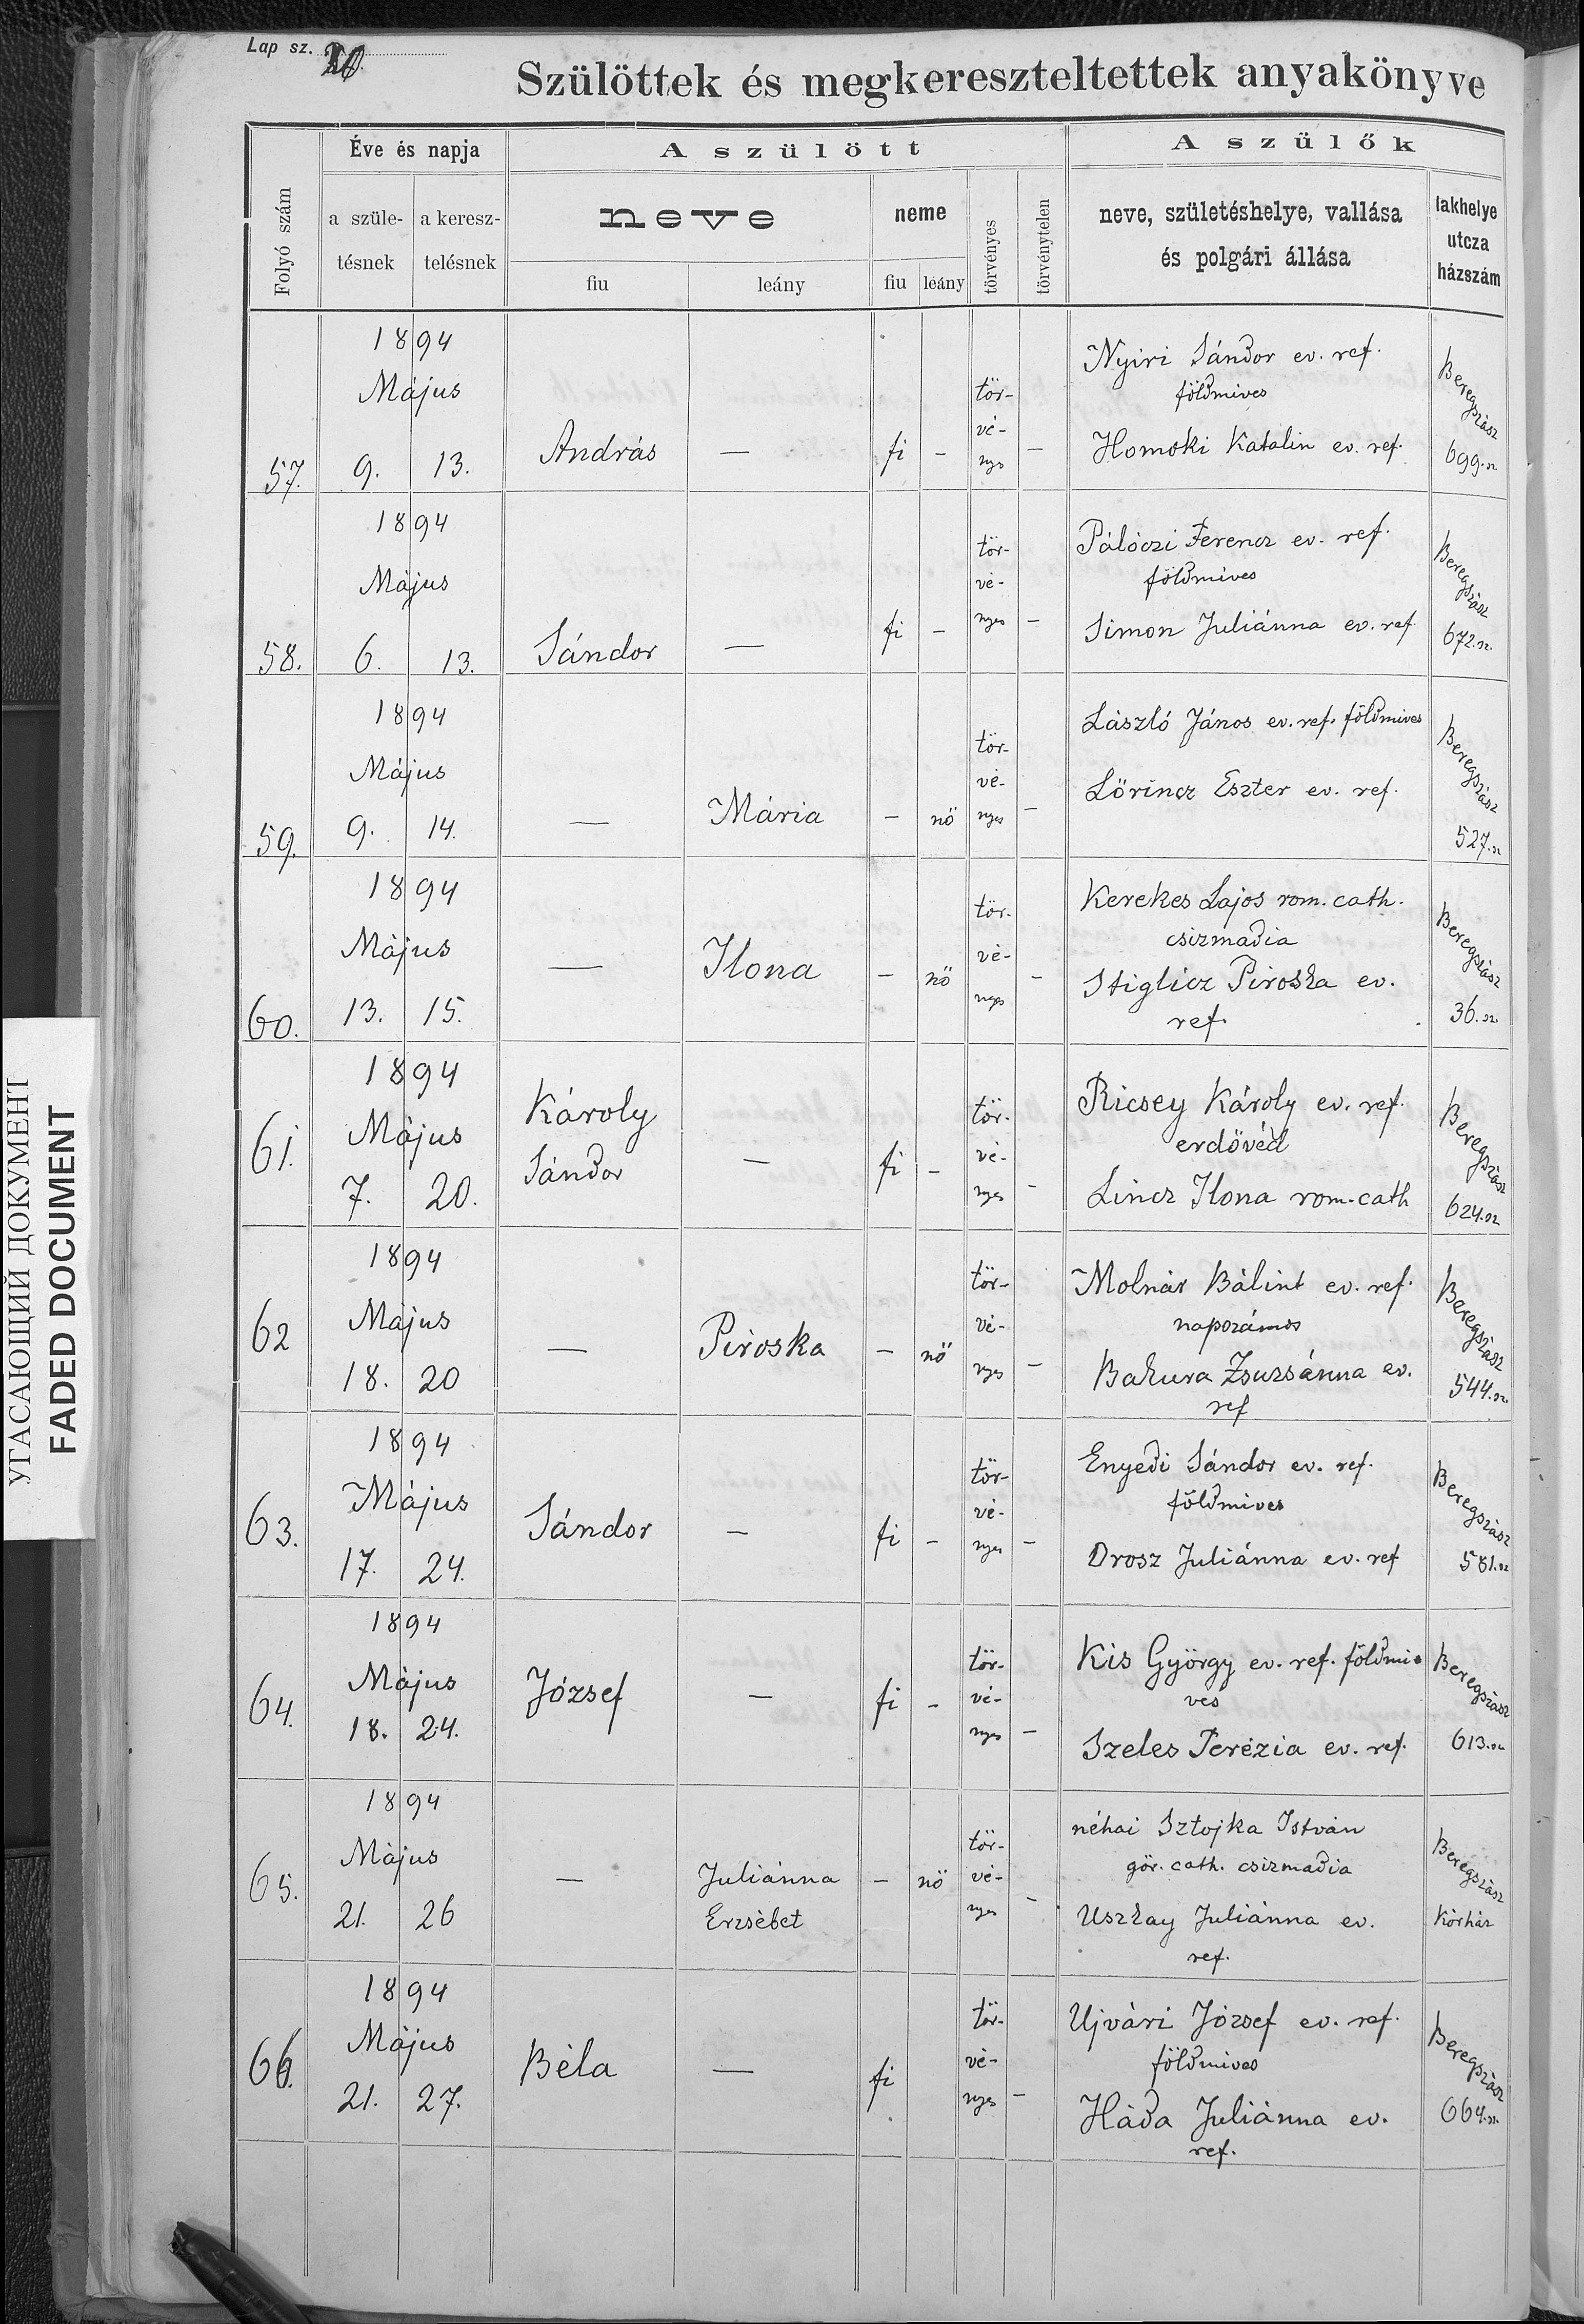 Lap sz. 20.
Szülöttek és megkereszteltettek anyakönyve
Folyó szám
Éve és napja
a szüle-
tésnek
a keresz-
telésnek
A szülött
neve
fiu
leány
neme
fiu
leány
törvényes
törvénytelen
A szülők
neve, születéshelye, vallása
és polgári állása
lakhelye
utcza
házszám
57. 1894 Május 9. 13. András — fi - tör-vé-nyes - Nyiri Sándor ev. ref.
földmives
Homoki Katalin ev. ref.
Beregszász
699. sz.
58. 1894 Május 6. 13. Sándor — fi - tör-vé-nyes - Pálóczi Ferencz ev. ref.
földmives
Simon Juliánna ev. ref.
Beregszász
672. sz.
59. 1894 Május 9. 14. — Mária - nö tör-vé-nyes - László János ev. ref. földmives
Lörincz Eszter ev. ref.
Beregszász
527. sz
60. 1894 Május 13. 15. — Ilona - nö tör-vé-nyes - Kerekes Lajos rom. cath.
csizmadia
Stiglicz Piroska ev.
ref.
Beregszász
36. sz.
61. 1894 Május 7. 20. Károly
Sándor — fi - tör-vé-nyes - Ricsey Károly ev. ref.
erdővéd
Lincz Ilona rom. cath
Beregszász
624. sz
62 1894 Május 18. 20 — Piroska - nö tör-vé-nyes - Molnár Bálint ev. ref.
napszámos
Bakura Zsuzsánna ev.
ref
Beregszász
544. sz.
63. 1894 Május 17. 24. Sándor — fi - tör-vé-nyes - Enyedi Sándor ev. ref.
földmives
Orosz Juliánna ev. ref
Beregszász
581. sz
64. 1894 Május 18. 24. József — fi - tör-vé-nyes - Kis György ev. ref. földmi-
ves
Szeles Terézia ev. ref.
Beregszász
613. sz
65. 1894 Május 21. 26 — Juliánna
Erzsébet - nö tör-vé-nyes - néhai Sztojka István
gör. cath. csizmadia
Uszkay Juliánna ev.
ref.
Beregszász
Kórház
66. 1894 Május 21. 27. Béla — fi tör-vé-nyes - Ujvári József ev. ref.
földmives
Háda Juliánna ev.
ref.
Beregszász
664. sz.
УГАСАЮЩИЙ ДОКУМЕНТ
FADED DOCUMENT